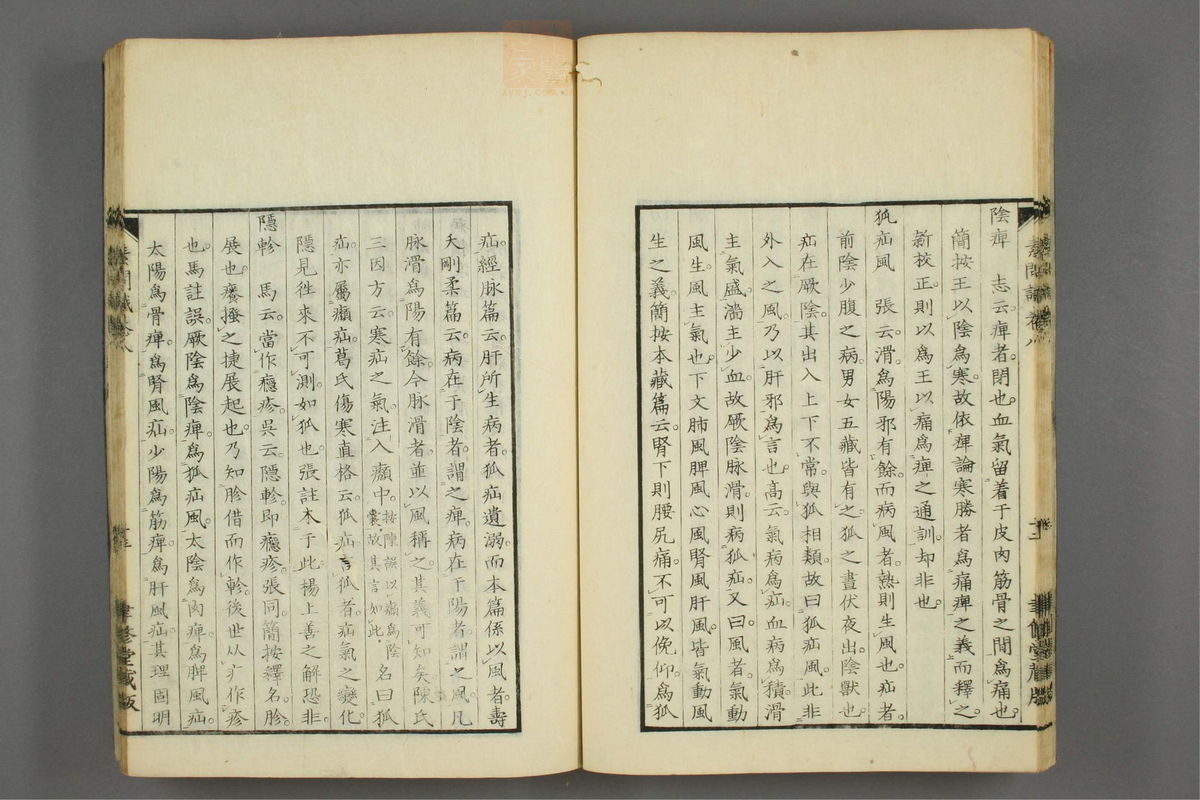 陰痺　志云。痺者。閉也。血氣留着于皮肉筋骨之間爲痛也。
簡按王以陰爲寒。故依痺論寒勝者爲痛痺之義而釋之。
新校正。則以爲王以痛爲痺之通訓。却非也。
狐疝風　張云。滑爲陽邪有餘。而病風者。熱則生風也。疝者。
前陰少腹之病。男女五藏皆有之。狐之晝伏夜出。陰獸也。
疝在厥陰。其出入上下不常。與狐相類。故曰狐疝風。此非
外入之風。乃以肝邪爲言也。高云。氣病爲疝。血病爲積。滑
主氣盛。濇主少血。故厥陰脉滑。則病狐疝。又曰風者。氣動
風生。風主氣也。下文肺風脾風心風腎風肝風。皆氣動風
生之義。簡按本藏篇云。腎下則腰尻痛。不可以俛仰。爲狐
疝。經脉篇云。肝所生病者。狐疝遺溺。而本篇係以風者。壽
夭剛柔篇云。病在于陰者。謂之痺。病在于陽者。謂之風。凡
脉滑爲陽有餘。今脉滑者。並以風稱之。其義可知矣。陳氏
三因方云。寒疝之氣。注入㿗中。按陳誤以㿗爲陰囊。故其言如此。名曰狐
疝。亦屬㿗疝。葛氏傷寒直格云。狐疝。言狐者。疝氣之變化。
隱見徃來不可測。如狐也。張註本于此。楊上善之解恐非。
隱軫　馬云。當作癮疹。吳云。隱軫。即癮疹。張同。簡按釋名。胗。
展也。癢搔之捷展起也。乃知胗借而作軫。後世从疒作疹
也。馬註誤。厥陰爲陰痺。爲狐疝風。太陰爲肉痺。爲脾風疝。
太陽爲骨痺。爲腎風疝。少陽爲筋痺。爲肝風疝。其理固明
聿修堂藏版